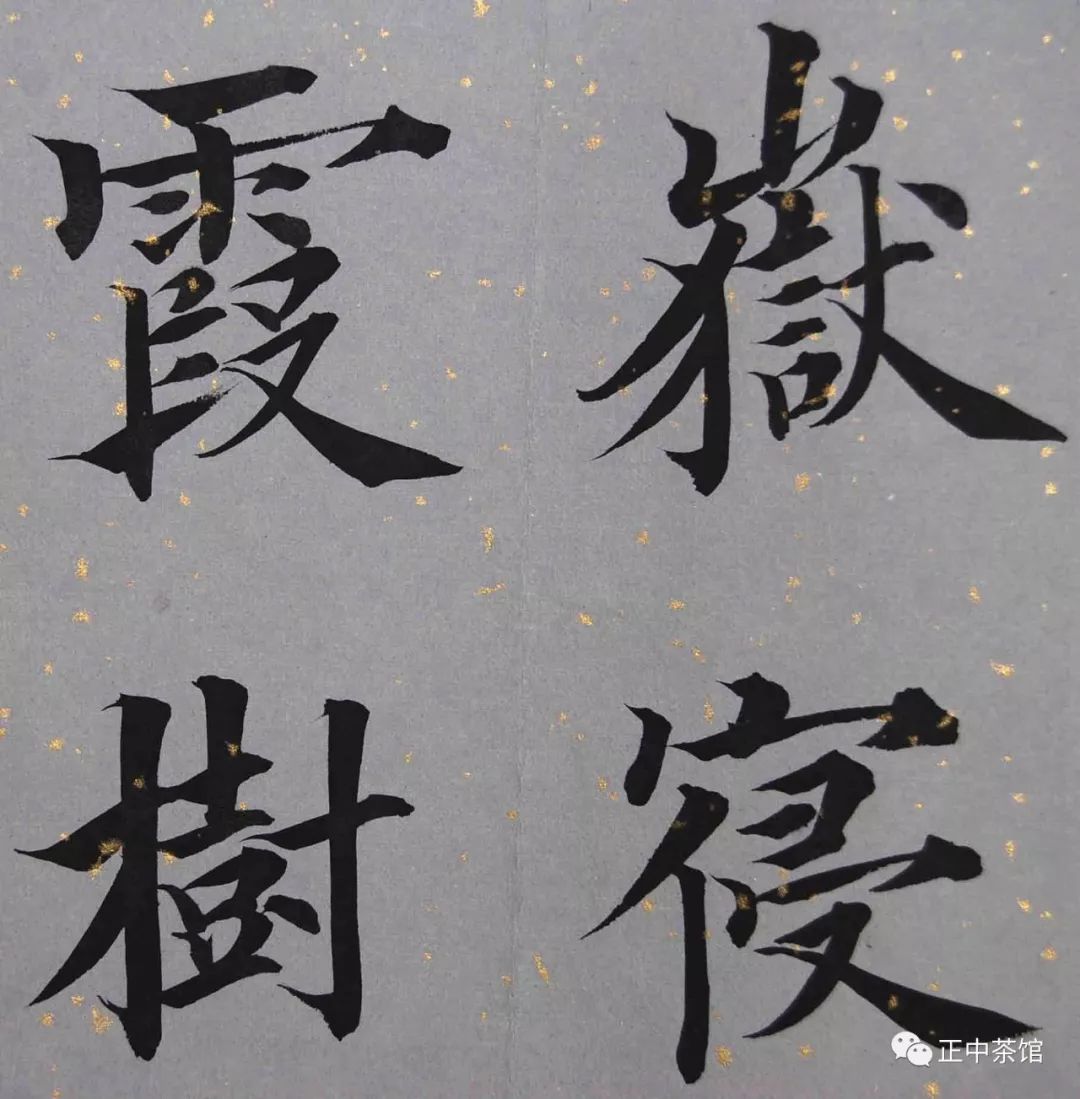 嶽寑
霞樹
正中茶馆